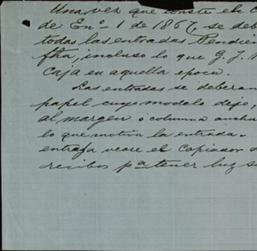 Una vez que conste el
de En.º 1 de 1867, se deb
todas las entradas Pendien
fha, incluso lo que J. J.
Caja en aquella epoca.
Las entradas se deberan
papel cuyo modelo dejo,
al margen ó columna anch
lo que motiva la entrada.
entrada vease el Copiador
recibos pª tener luz s